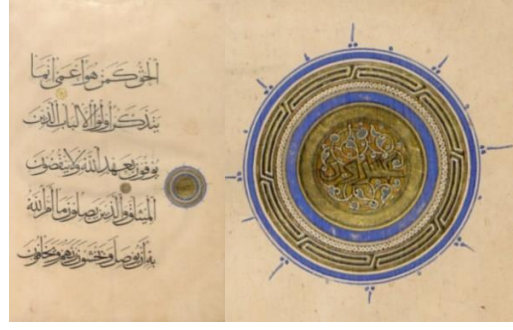 الحق كمن هو أعمى إنما
يتذكر أولوا الألباب الذين
يوفون بعهد الله ولا ينقضون
الميثاق والذين يصلون ما أمر الله
به أن يوصل ويخشون ربهم ويخافون